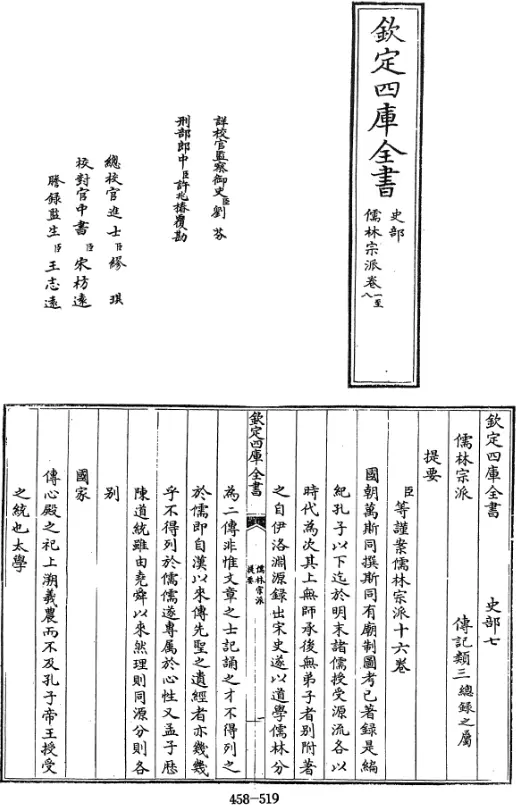 欽定四庫全書
史部
儒林宗派卷一至八
詳校官監察御史臣劉芬
刑部郎中臣許兆椿覆勘
總校官進士臣繆琪
校對官中書臣宋枋遠
謄錄監生臣王志遠
欽定四庫全書 史部七
儒林宗派 傳記類三總錄之屬
提要
臣等謹案儒林宗派十六卷
國朝萬斯同撰斯同有廟制圖考已著錄是編
紀孔子以下迄於明末諸儒授受源流各以
時代為次其上無師承後無弟子者別附著
之自伊洛淵源錄出宋史遂以道學儒林分
欽定四庫全書
儒林宗派
提要
為二傳非惟文章之士記誦之才不得列之
於儒即自漢以來傳先聖之遺經者亦幾幾
乎不得列於儒儒遂專屬於心性又孟子歷
陳道統雖由堯舜以來然理則同源分則各
別
國家
傳心殿之祀上溯羲農而不及孔子帝王授受
之統也太學
458-519